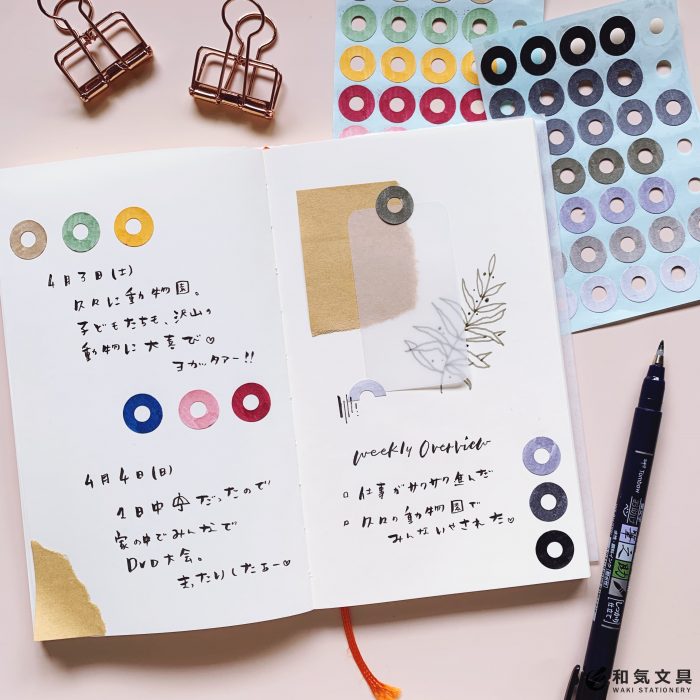 4月3日(土)
久々に動物園。
子どもたちも、沢山の
動物に大喜び♡
ヨカッタァー!!
4月4日(日)
1日中☂だったので
家の中でみんなで
DVD大会。
まったりしたぁー♡
weekly Overview
□ 仕事がサクサク進んだ
□ 久々の動物園で
みんないやされた♡
Tombow
筆之助
しっかり仕立て
和気文具
WAKI STATIONERY